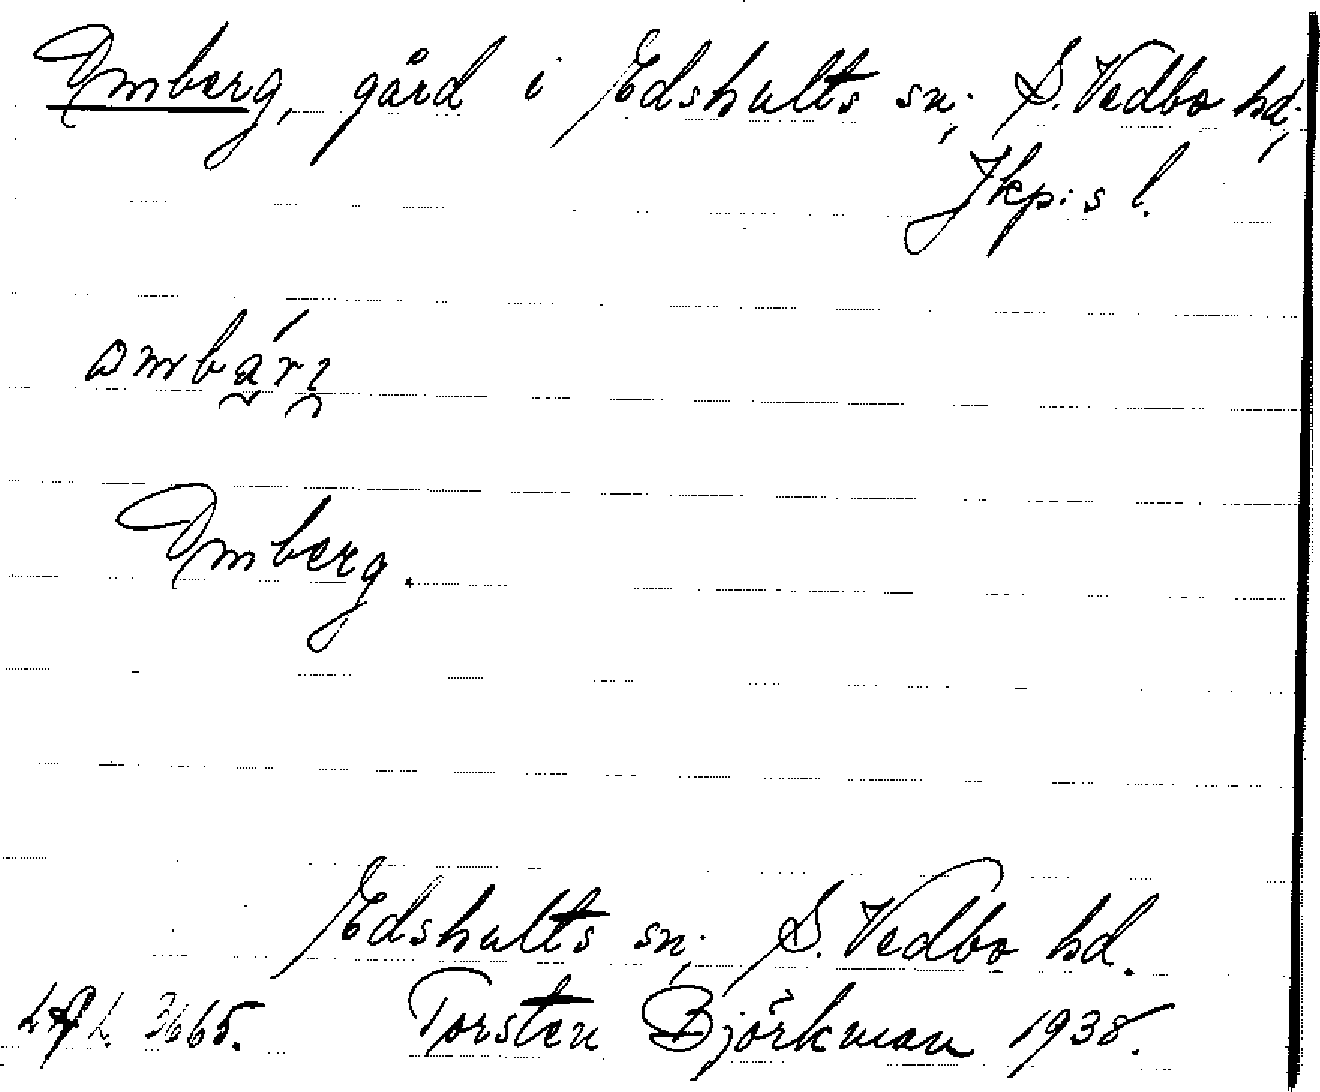 Ymberg, gård i Edshults sn; S. Vedbo hd;
Jkp:s l.
Ymberg.
Edshults sn; S. Vedbo hd.
3665. Torsten Björkman 1938.